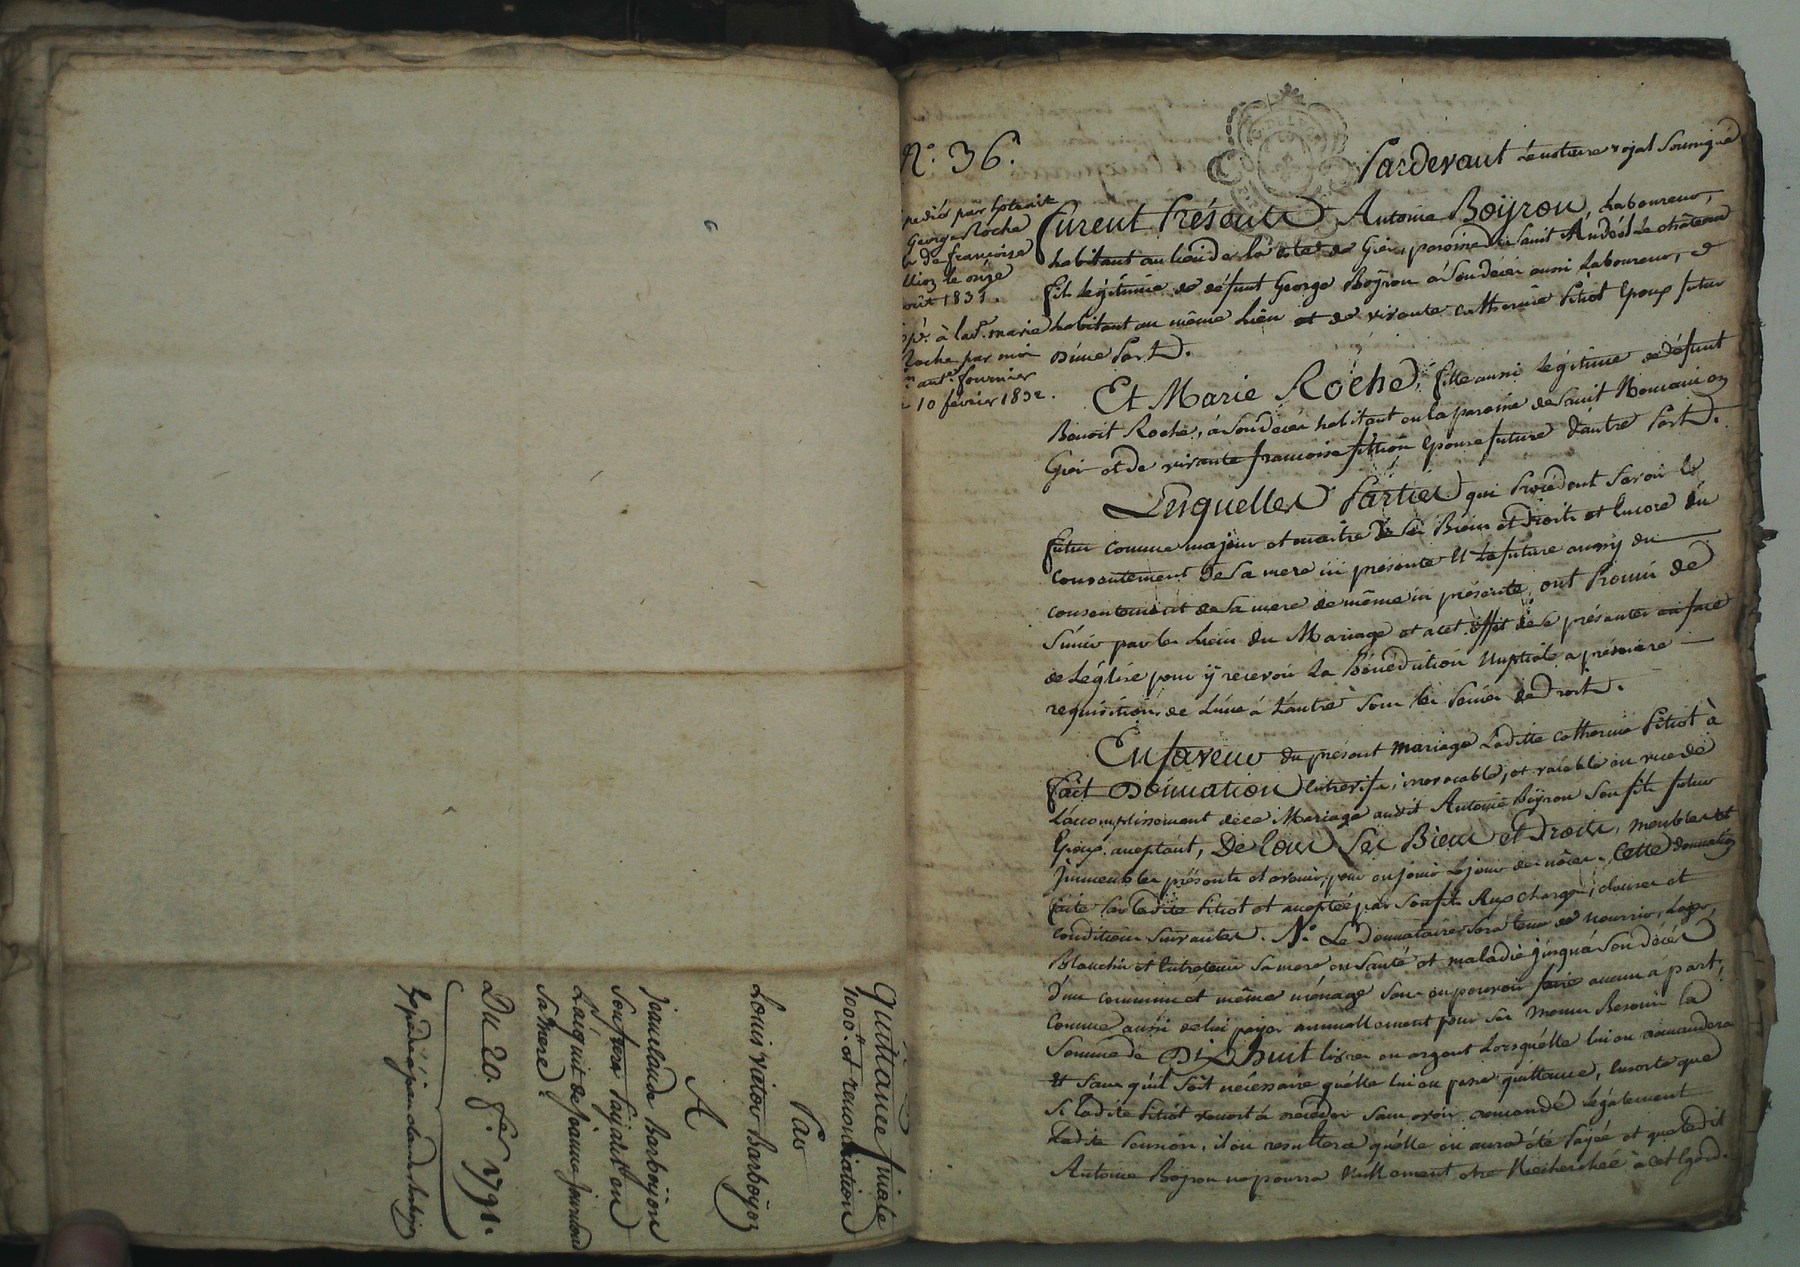 Quittance finale
1000.# et renonciation
Par
Louis victor Barboyon
A
jeanclaude Barboyon
Son frere Païable en
L'acquit de jeanne jourdan
Sa mere
Du 20. f.er 1791.
Expedié a jean claude Barboyon
N.o 36.
pedié par Extrait
George Roche
de françoise
le onze
oût 1831.
à lad.e marie
Roche par moi
ant.e fournier
10 février 1832.
Pardevant Lenotaire royal Soussigné
furent Présents Antoine Boÿron, Laboureur,
habitant au lieu de la de Gier, paroisse de Saint Andéol Le château
fils Légitime de défunt George Boÿron à Son décès aussi Laboureur, et
habitant au même Lieu et de vivante catherine Pitiot Epoux futur
d'une Part.
Et Marie Roche, fille aussi Légitime de défunt
Benoit Roche, à Son décès habitant en la paroisse de Saint Romain en
Gier et de vivante françoise Epouse future d'autre Part.
Lesquelles Parties qui Procédent Savoir le
futur comme majeur et maitre de Ses Biens et Droits et Encore du
consentement de Sa mere ici présente Et La future aussy du
consentement de Sa mere de même ici présente, ont Promis de
S'unir par les Liens du Mariage et à cet effet de Se présenter en face
de L'église pour ÿ recevoir La Bénédiction Nuptiale a premiere
requisition de L'une à L'autre Sous les Peines de Droit.
En faveur du présent mariage Ladite catherine Pitiot à
fait Donnation Entrevifs, irrevocable, et valable en vue de
L'accomplissement de ce Mariage audit Antoine Boÿron Son fils futur
Epoux acceptant, De tous Ses Biens et Droits, meubles et
Immeubles présents et avenir, pour en jouir Le jour des nôces. Cette donnation
faite par Ladite Pitiot et acceptée par Son fils Aux charges, clauses et
conditions Suivantes. 1.o Le Donnataire Sera tenu de nourrir, Loger,
Blanchir et Entretenir Sa mere en Santé et maladie jusqu'à Son décès
d'un commun et même ménage Sans en pouvoir faire aucun à part;
comme aussi de lui payer annuellement pour Ses Menus Besoins la
Somme de Dix huit livres en argent Lorsqu'élle lui en demandera
Et Sans qu'il Soit nécessaire qu'élle lui en passe quittance, Ensorte que
Si Ladite Pitiot venoit à décéder Sans avoir demandé Légalement
Ladite Pension, il en resultera qu'élle en aura été Payée et que Ledit
Antoine Boÿron ne pourra Nullement être Recherchée à cet Egard.